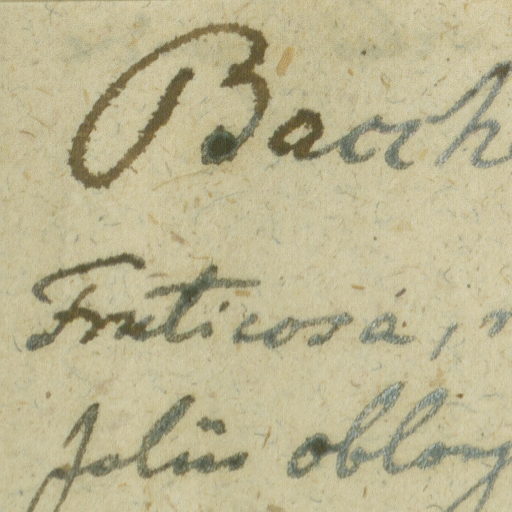 Bacch
Fruticosa,
foliis oblong